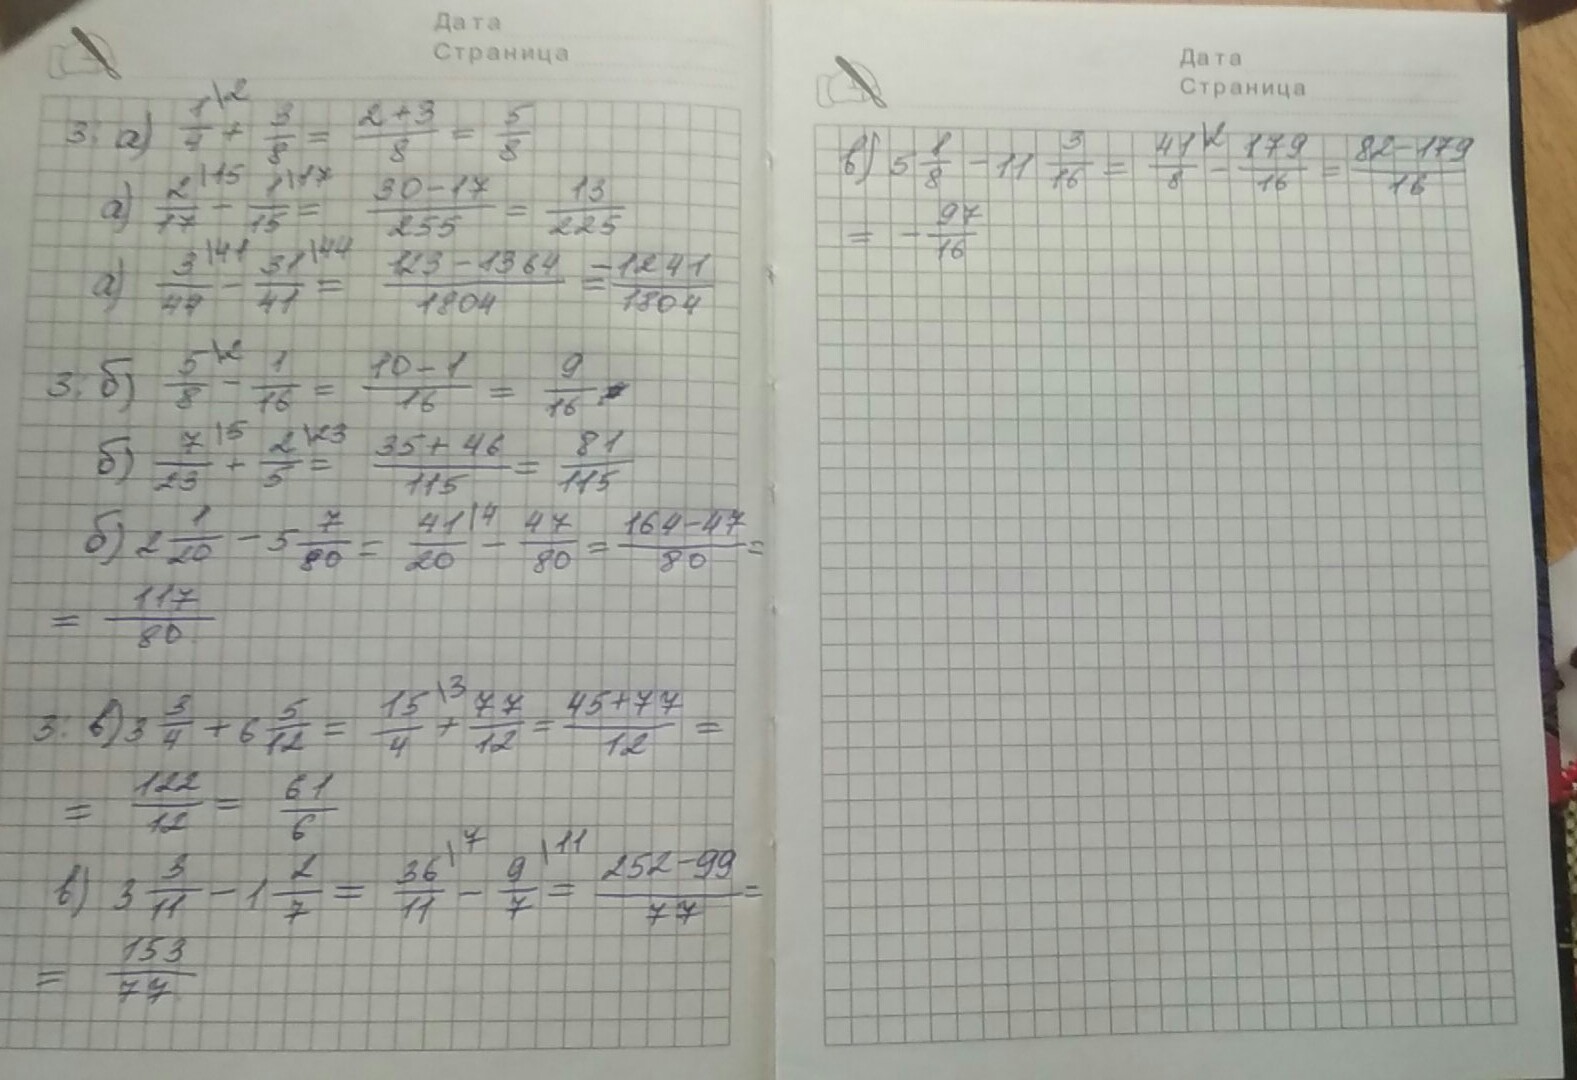 Дата
Страница
3. а) 1/4 \2 + 3/8 = (2+3)/8 = 5/8
а) 2/17 \15 - 1/15 \17 = (30-17)/255 = 13/225
а) 3/44 \41 - 31/41 \44 = (123-1364)/1804 = -1241/1804
3. б) 5/8 \2 - 1/16 = (10-1)/16 = 9/16
б) 7/23 \5 + 2/5 \23 = (35+46)/115 = 81/115
б) 2 1/20 - 5 7/80 = 41/20 \4 - 47/80 = (164-47)/80 =
= 117/80
3. в) 3 3/4 + 6 5/12 = 15/4 \3 + 77/12 = (45+77)/12 =
= 122/12 = 61/6
в) 3 3/11 - 1 2/7 = 36/11 \7 - 9/7 \11 = (252-99)/77 =
= 153/77
Дата
Страница
в) 5 1/8 - 11 3/16 = 41/8 \2 - 179/16 = (82-179)/16
= - 97/16